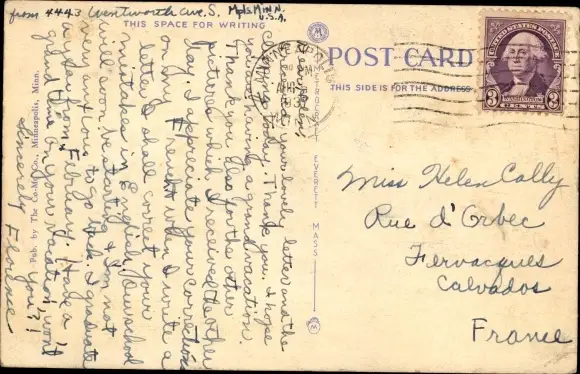 from 4443 Wentworth Ave. S. Mpls Minn.
U.S.A.
THIS SPACE FOR WRITING
Dear Helen
Received your lovely letter and the
clippings today. Thank you. I hope
you are having a grand vacation.
Thank you also for the other
pictures which I received the other
day. I appreciate your corrections
on my French when I write a
letter. I shall correct your
mistakes in English. Our school
will soon be starting & I'm not
very anxious to go back. I graduate
a year from February. Have a
grand time on your vacation, won't
you?!
Sincerely
Florence
Pub. by The Co-Mo Co., Minneapolis, Minn.
METROCRAFT EVERETT MASS
M
MINNEAPOLIS
POST CARD
THIS SIDE IS FOR THE ADDRESS
UNITED STATES POSTAGE
WASHINGTON
3 CENTS 3
Miss Helen Cally
Rue d'Orbec
Fervacques
Calvados
France